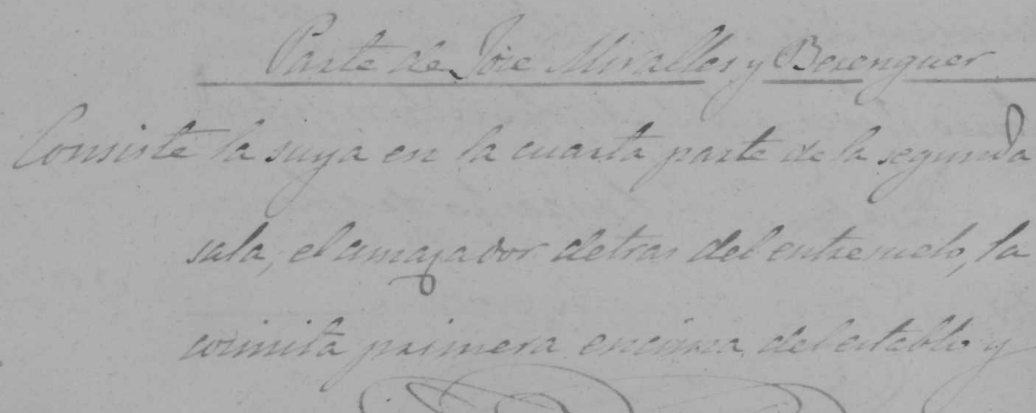 Parte de Jose Miralles y Berenguer
Consiste la suya en la cuarta parte de la segunda
sala, el amaȝador detras del entresuelo, la
coimita primera encima del establo y